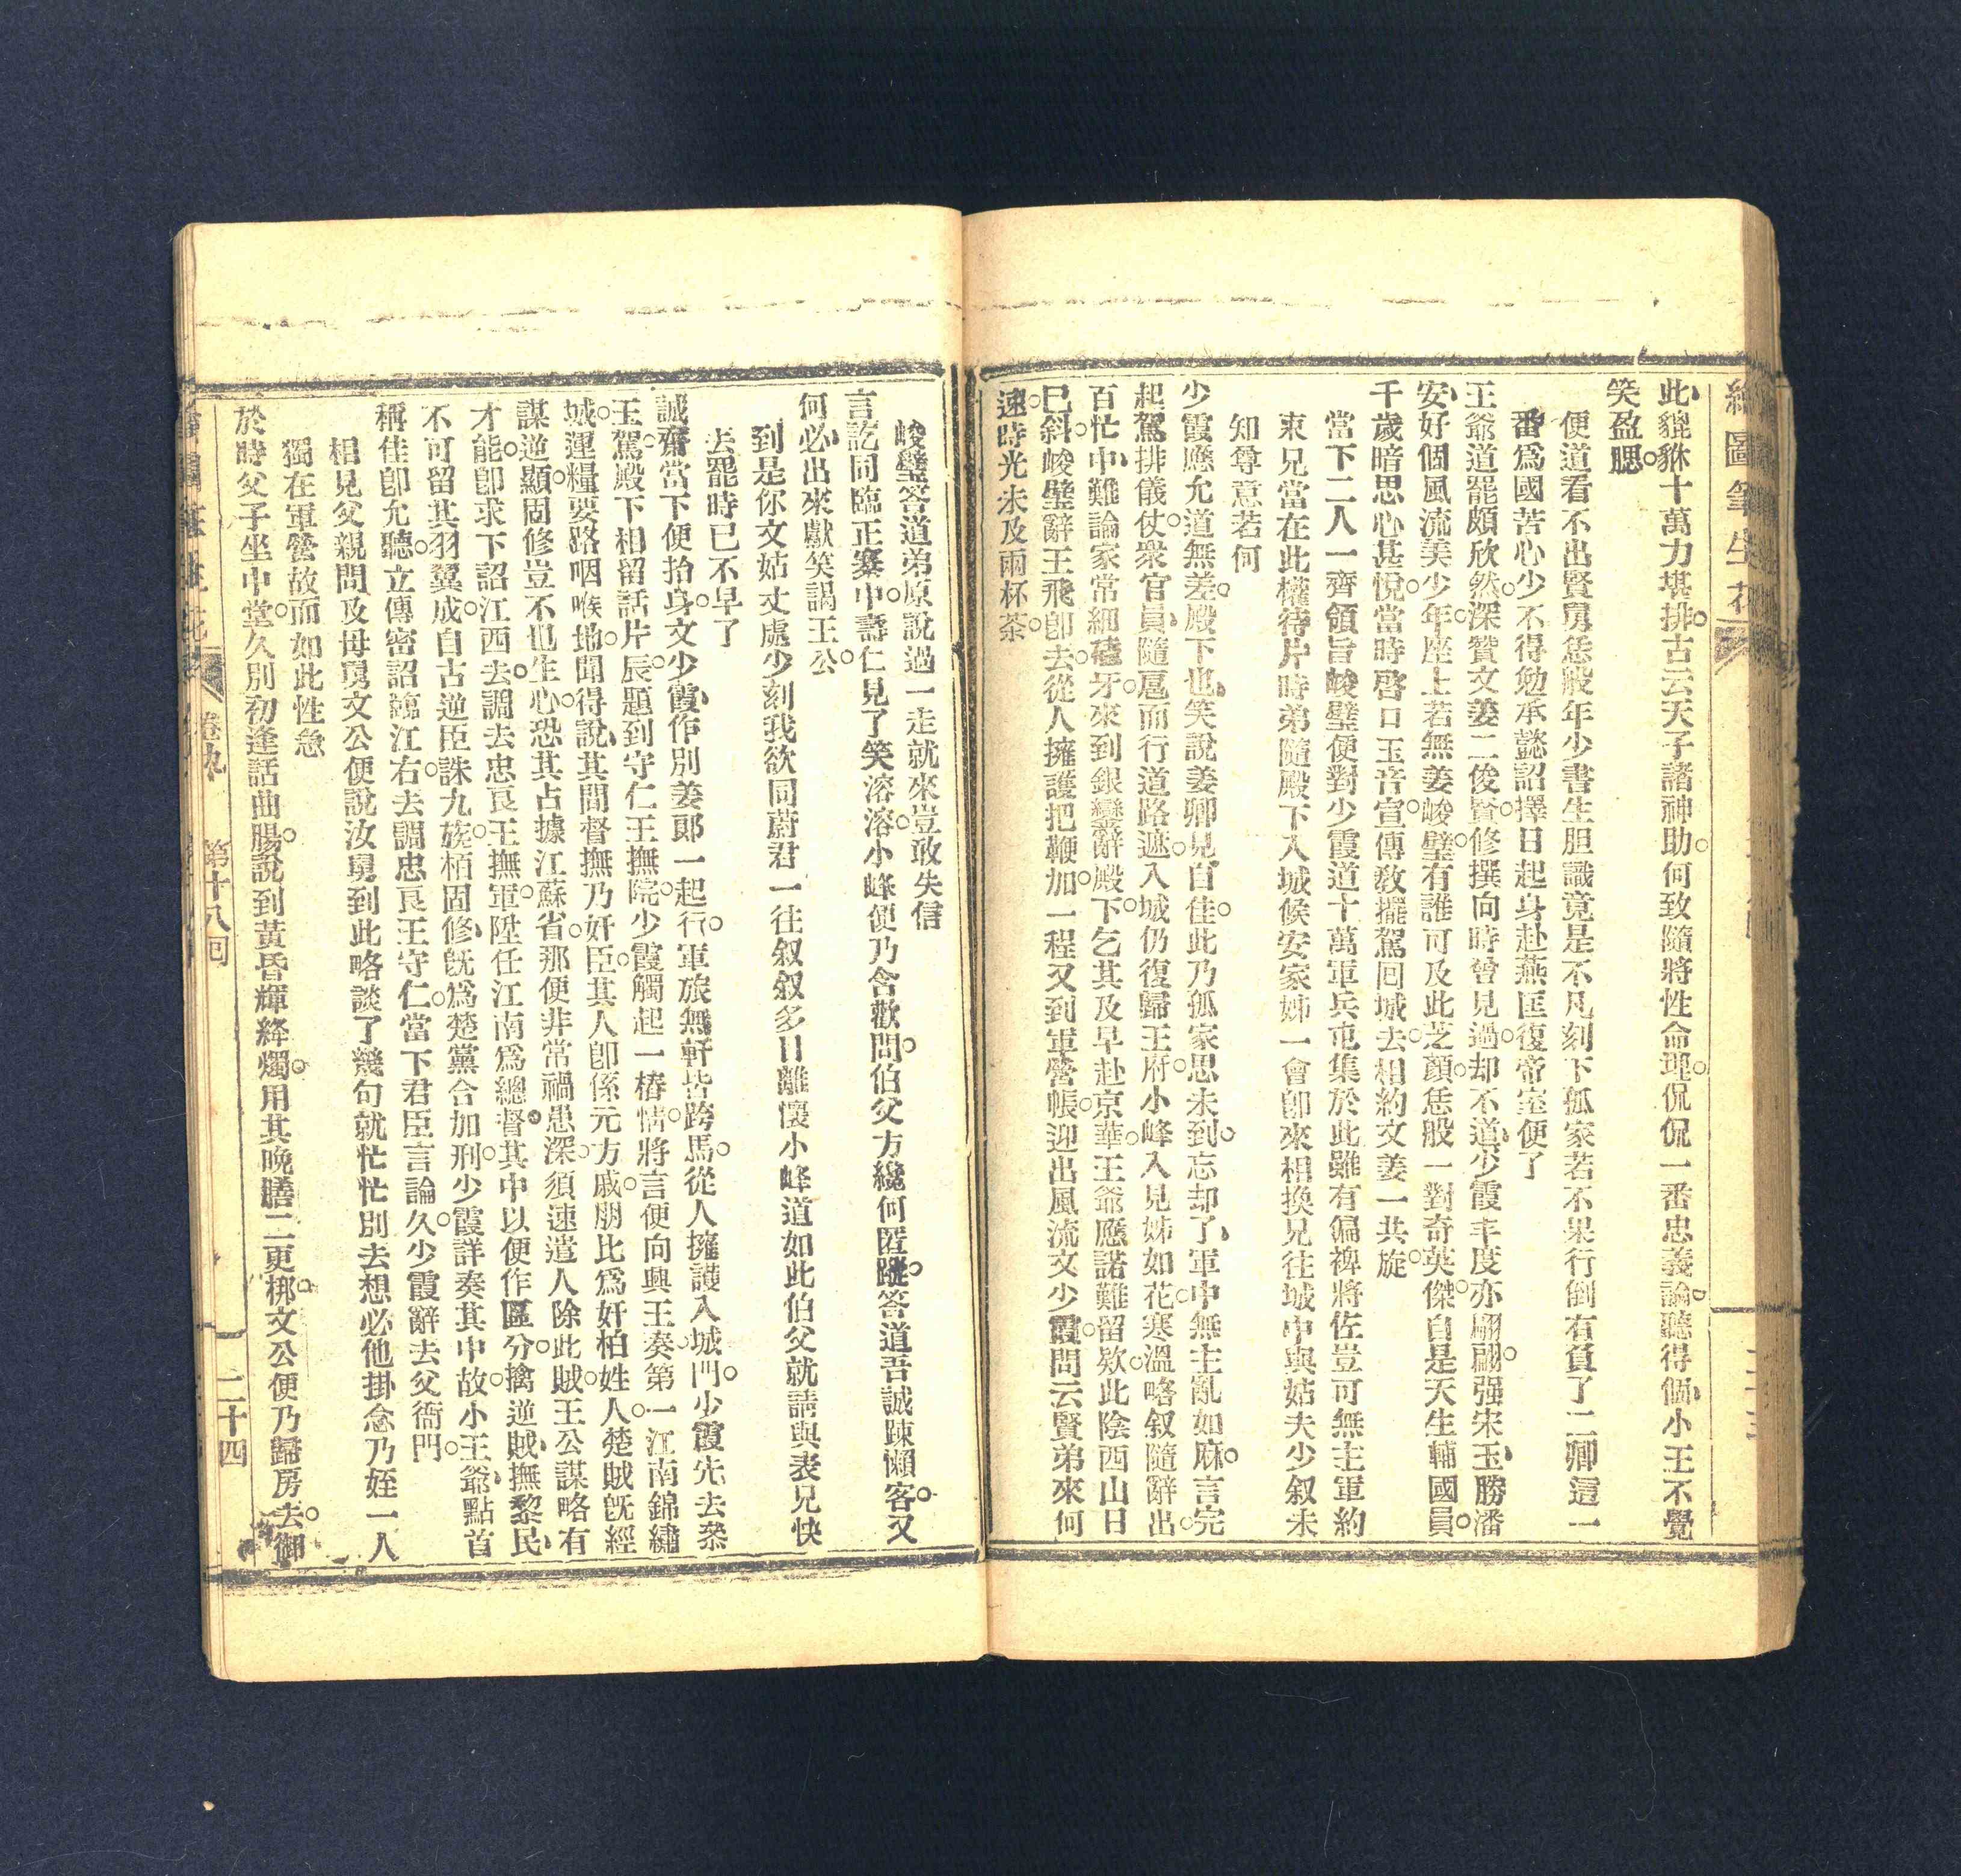 繪圖筆生花
此貔貅十萬力堪排。古云天子諸神助。何致隨將性命理。侃侃一番忠義論。聽得個小王不覺
笑盈腮。
便道看不出賢舅恁般年少書生胆識竟是不凡刻下孤家若不果行倒有負了二卿這一
番爲國苦心少不得勉承懿詔擇日起身赴燕匡復帝室便了
王爺道罷頗欣然。深贊文姜二俊賢。修撰向時曾見過。却不道少霞丰度亦翩翩。强宋玉勝潘
安。好個風流美少年。座上若無姜峻璧。有誰可及此芝顏。恁般一對奇英傑。自是天生輔國員。
千歲暗思心甚悅。當時啓口玉音宣。傳敎擺駕回城去。相約文姜一共旋。
當下二人一齊領旨峻璧便對少霞道十萬軍兵屯集於此雖有偏裨將佐豈可無主軍約
束兄當在此權待片時弟隨殿下入城候安家姊一會卽來相換兄往城中與姑夫少叙未
知尊意若何
少霞應允道無差。殿下也笑說姜卿見自佳。此乃孤家思未到。忘却了軍中無主亂如麻。言完
起駕排儀仗。衆官員隨扈而行道路遮。入城仍復歸王府。小峰入見姊如花。寒溫略叙隨辭出。
百忙中難論家常細磕牙。來到銀鑾辭殿下。乞其及早赴京華。王爺應諾難留欵。此陰西山日
已斜。峻璧辭王飛卽去。從人擁護把鞭加。一程又到軍營帳。迎出風流文少霞。問云賢弟來何
速。時光未及兩杯茶。
峻璧答道弟原說過一走就來豈敢失信
言訖同臨正寨中。壽仁見了笑溶溶。小峰便乃含歡問。伯父方纔何匿蹤。答道吾誠踈懶客。又
何必出來獻笑謁王公。
到是你文姑丈處少刻我欲同蔚君一往叙叙多日離懷小峰道如此伯父就請與表兄快
去罷時已不早了
誠齋當下便抬身。文少霞作別姜郞一起行。軍旅無軒皆跨馬。從人擁護入城門。少霞先去叅
王駕。殿下相留話片辰。題到守仁王撫院。少霞觸起一樁情。將言便向興王奏。第一江南錦繡
城。運糧要路咽喉地。聞得說其間督撫乃奸臣。其人卽係元方戚。朋比爲奸柏姓人。楚賊旣經
謀逆顯。固修豈不也生心。恐其占據江蘇省。那便非常禍患深。須速遣人除此賊。王公謀略有
才能。卽求下詔江西去。調去忠良王撫軍。陞任江南爲總督。其中以便作區分。擒逆賊撫黎民。
不可留其羽翼成。自古逆臣誅九族。栢固修旣爲楚黨合加刑。少霞詳奏其中故。小王爺點首
稱佳卽允聽。立傳密詔臨江右。去調忠良王守仁。當下君臣言論久。少霞辭去父衙門。
相見父親問及母舅文公便說汝舅到此略談了幾句就忙忙別去想必他掛念乃姪一人
獨在軍營故而如此性急
於時父子坐中堂。久別初逢話曲腸。說到黃昏輝絳燭。用其晚膳二更梆。文公便乃歸房去。御
卷九 第十八回 二十四